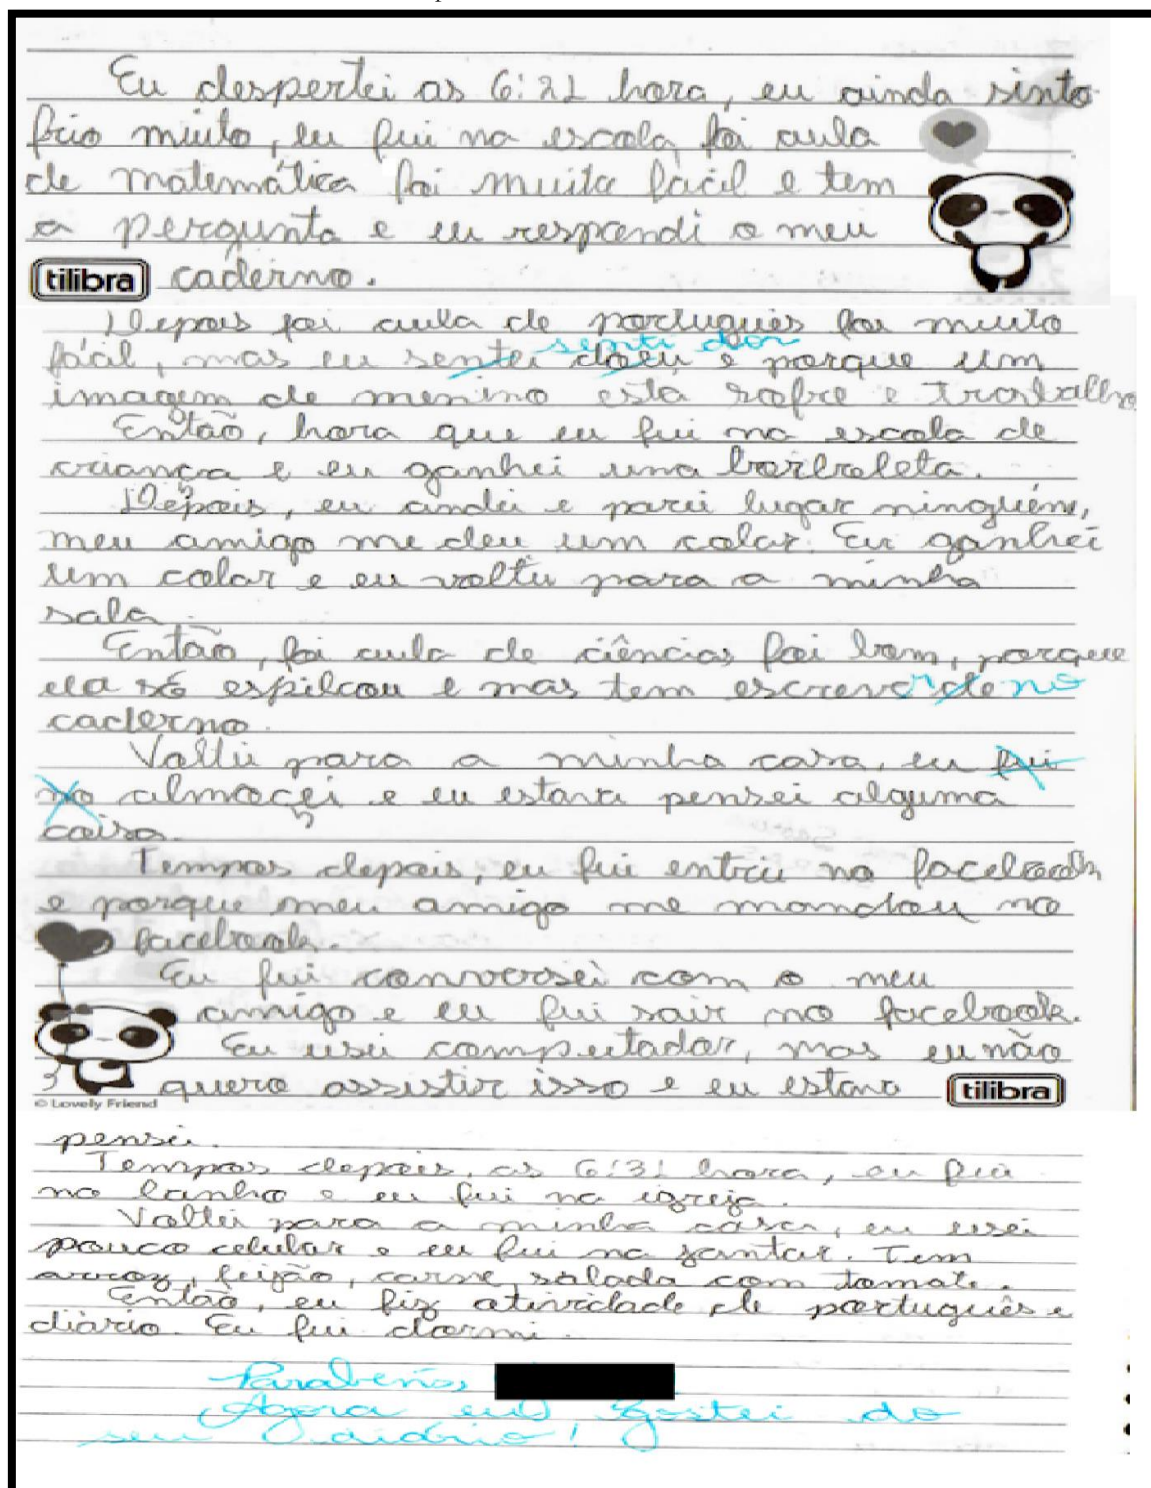 Eu despertei as 6:21 hora, eu ainda sinto
frio muito, eu fui na escola foi aula
de matemática foi muita fácil e tem
a pergunta e eu respondi o meu
tilibra caderno.
Depois foi aula de português foi muito
senti dor
fácil, mas eu sentei doeu e porque um
imagem de menino esta sofre e trabalho
Então, hora que eu fui na escola de
criança e eu ganhei uma borboleta.
Depois, eu andei e parei lugar ninguém,
meu amigo me deu um colar. Eu ganhei
um colar e eu voltei para a minha
sala.
Então, foi aula de ciências foi bom, porque
ela só espilcou e mas tem escrever de no
caderno.
Voltei para a minha casa, eu fui
no almoçei e eu estava pensei alguma
coisa.
Tempos depois, eu fui entrei no facebook
e porque meu amigo me mandou no
facebook.
Eu fui conversei com o meu
amigo e eu fui sair no facebook.
Eu usei computador, mas eu não
quero assistir isso e eu estava tilibra
© Lovely Friend
pensei.
Tempos depois, as 6:31 hora, eu fui
no banho e eu fui na igreja.
Voltei para a minha casa, eu usei
pouco celular e eu fui na jantar. Tem
arroz, feijão, carne, salada com tomate.
Então, eu fiz atividade de português e
diário. Eu fui dormi.
Parabéns,
Agora eu gostei do
seu diário!